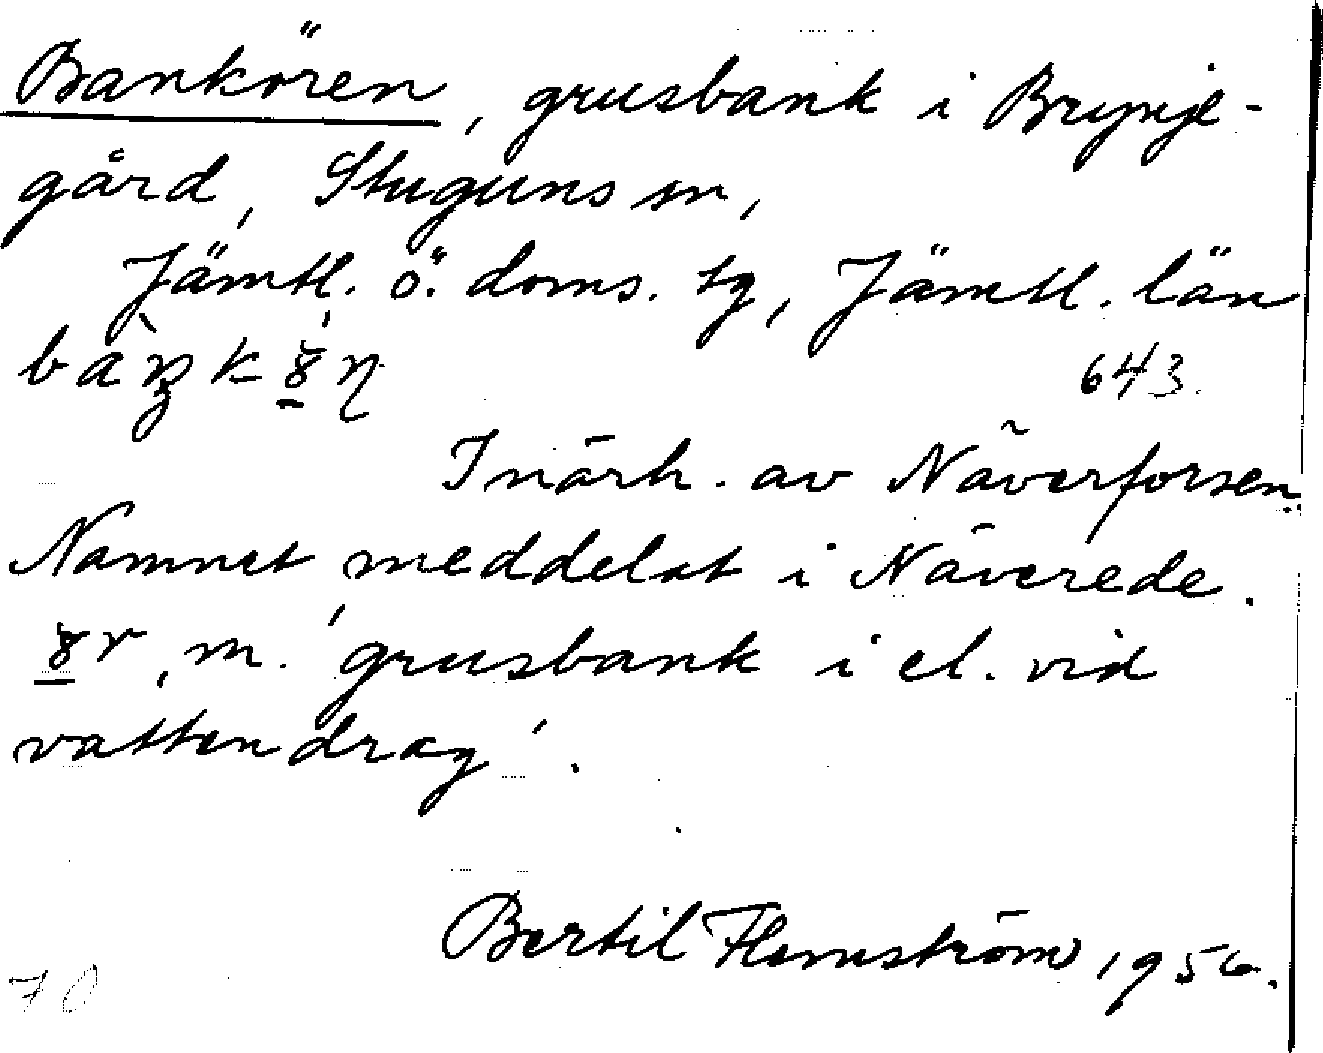 Bankören, grusbank i Brynje-
gård, Stuguns sn,
Jämtl. ö. doms. tg, Jämtl. län
643.
I närh. av Näverforsen.
Namnet meddelat i Näverede.
m. 'grusbank i el. vid
vattendrag'.
Bertil Flemström, 1956.
70